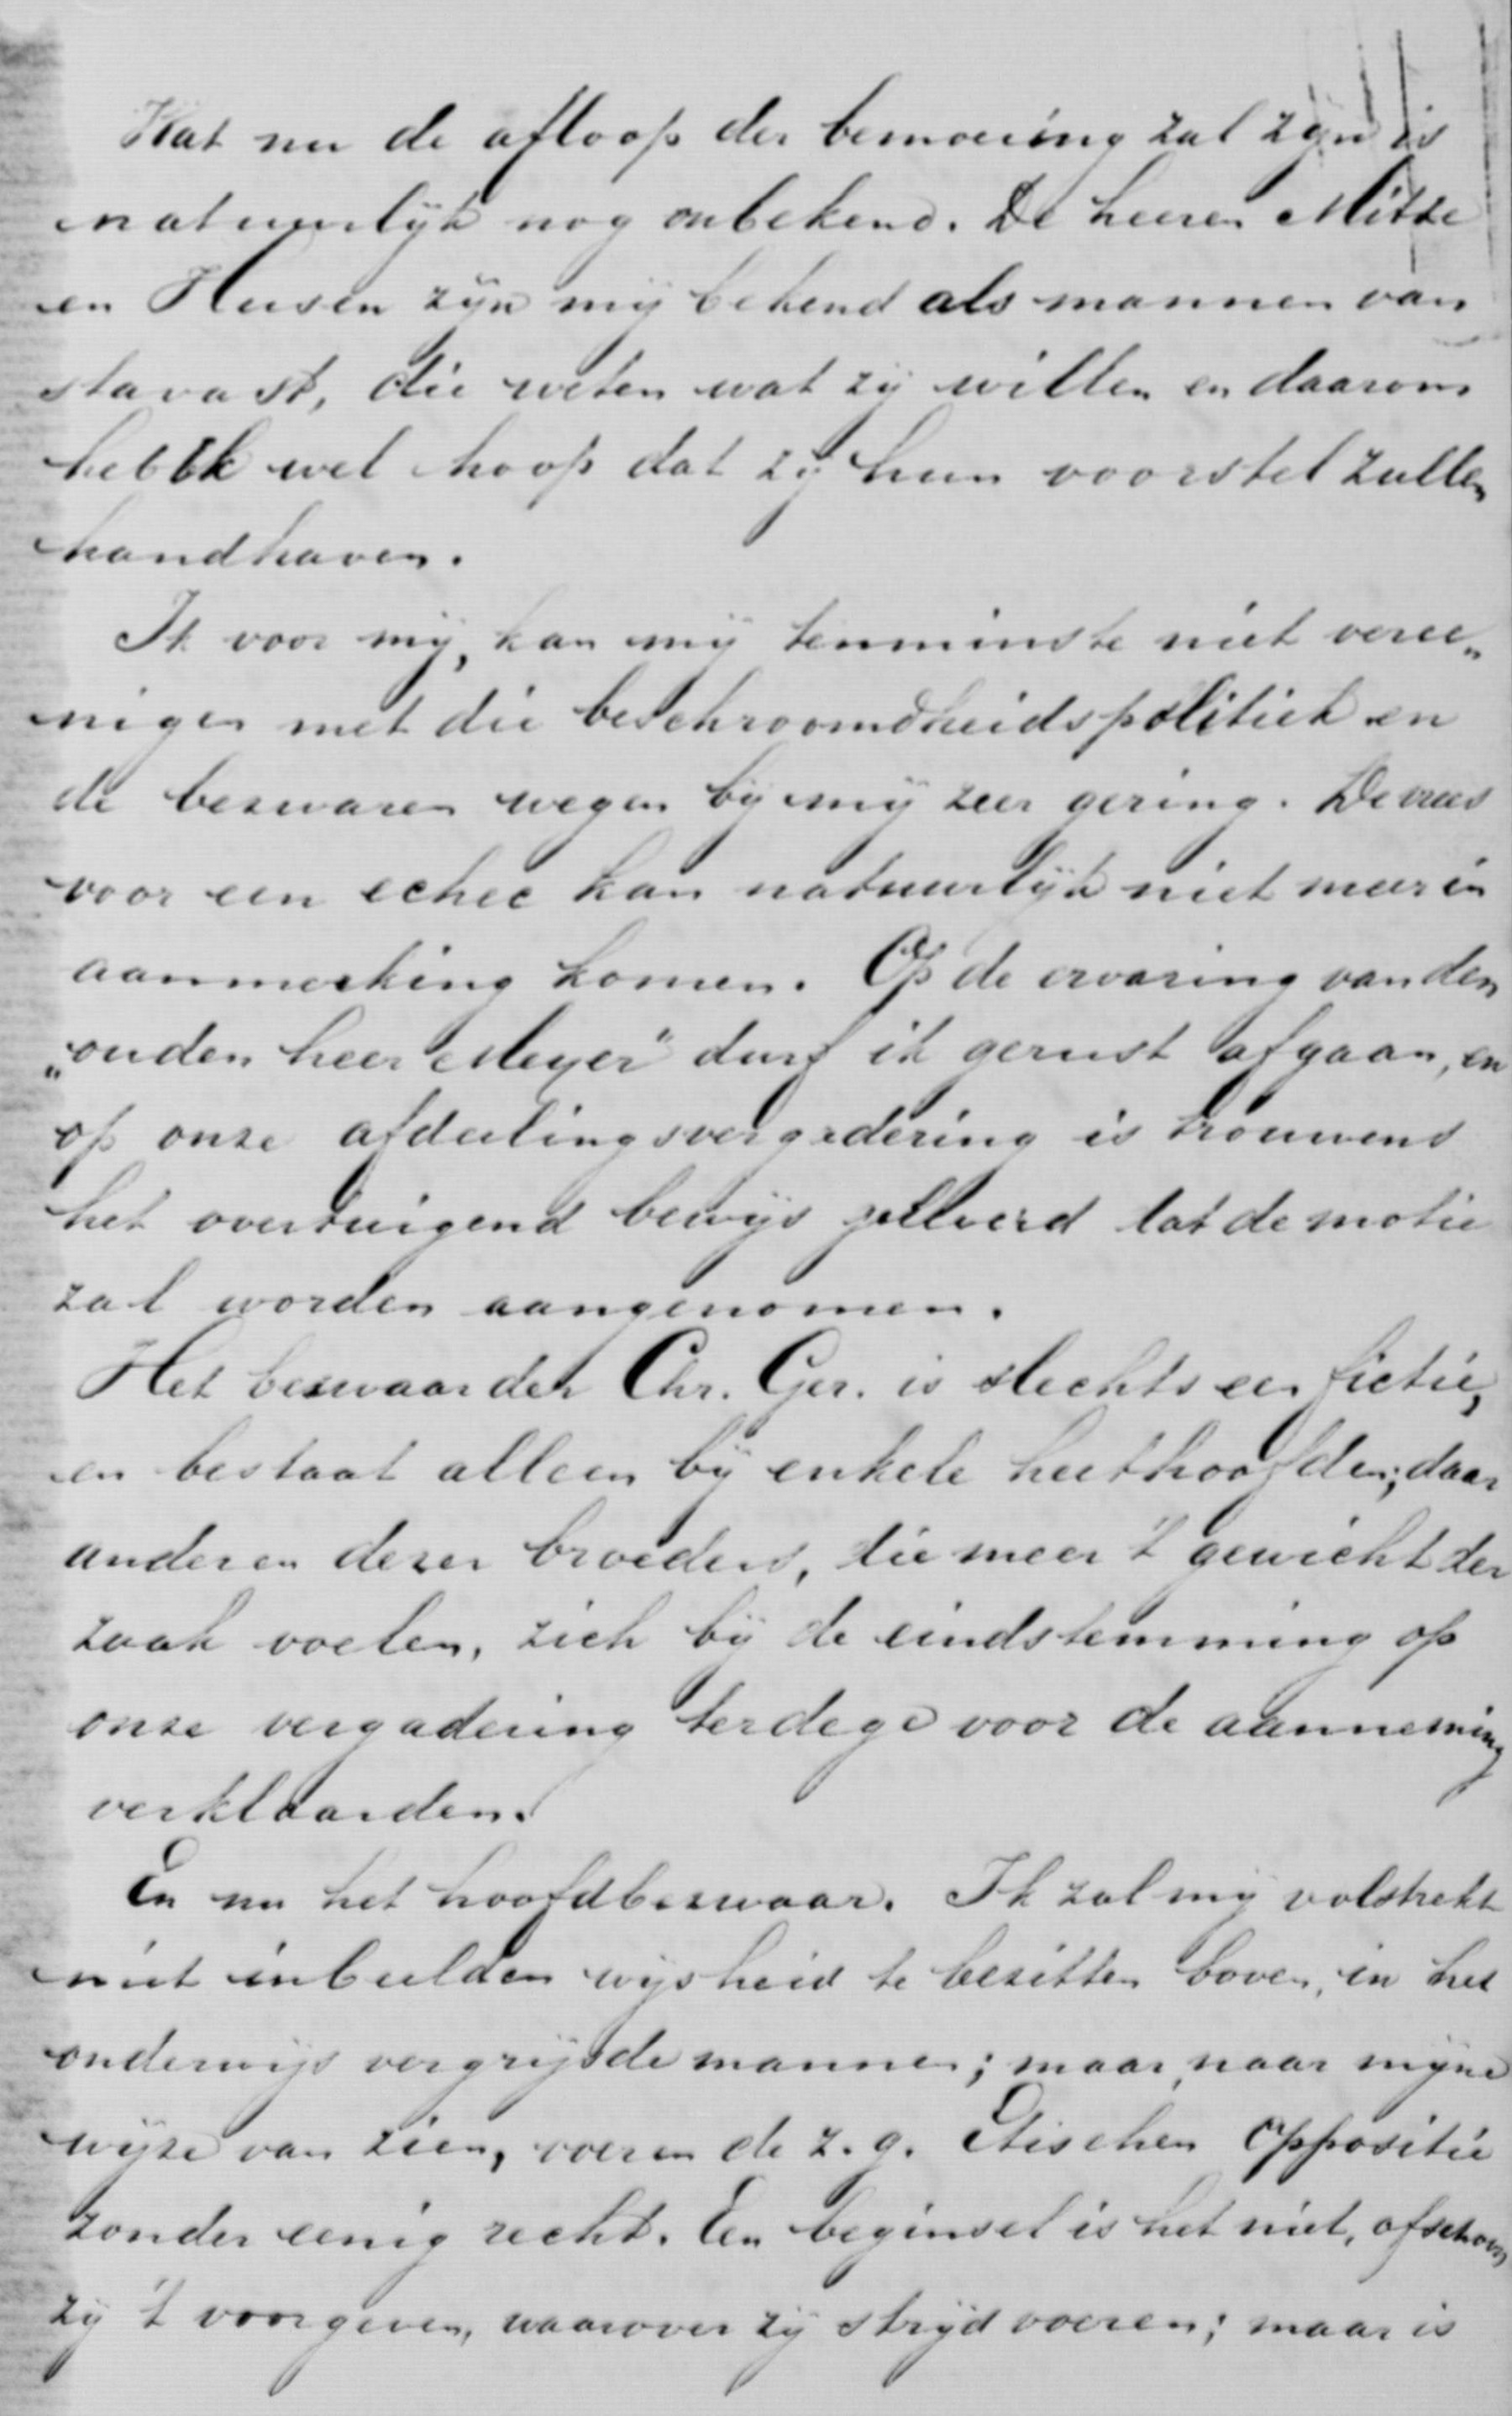 Wat nu de afloop der bemoeiing zal zijn is
natuurlijk nog onbekend. De heeren Mitte
en Husen zijn mij bekend als mannen van
stavast, die weten wat zij willen en daarom
heb ik wel hoop dat zij hun voorstel zullen
handhaven.
Ik voor mij, kan mij tenminste niet veree„
nigen met die beschroomdheidspolitiek en
de bezwaren wegen bij mij zeer gering. De vrees
voor een echec kan natuurlijk niet meer in
aanmerking komen. Op de ervaring van den
„ouden heer Meyer" durf ik gerust afgaan, en
op onze afdeelingsvergadering is trouwens
het overtuigend bewijs geleverd dat de motie
zal worden aangenomen.
Het bezwaar der Chr. Ger. is slechts een fictie,
en bestaat alleen bij enkele heethoofden; daar
anderen dezer broeders, die meer 't gewicht der
zaak voelen, zich bij de eindstemming op
onze vergadering terdege voor de aanneming
verklaarden.
En nu het hoofdbezwaar. Ik zal mij volstrekt
niet inbeelden wijsheid te bezitten boven, in het
onderwijs vergrijsde mannen; maar, naar mijne
wijze van zien, voeren de z.g. Etischen oppositie
zonder eenig recht. Een beginsel is het niet, ofschoon
zij 't voorgeven, waarover zij strijd voeren; maar is